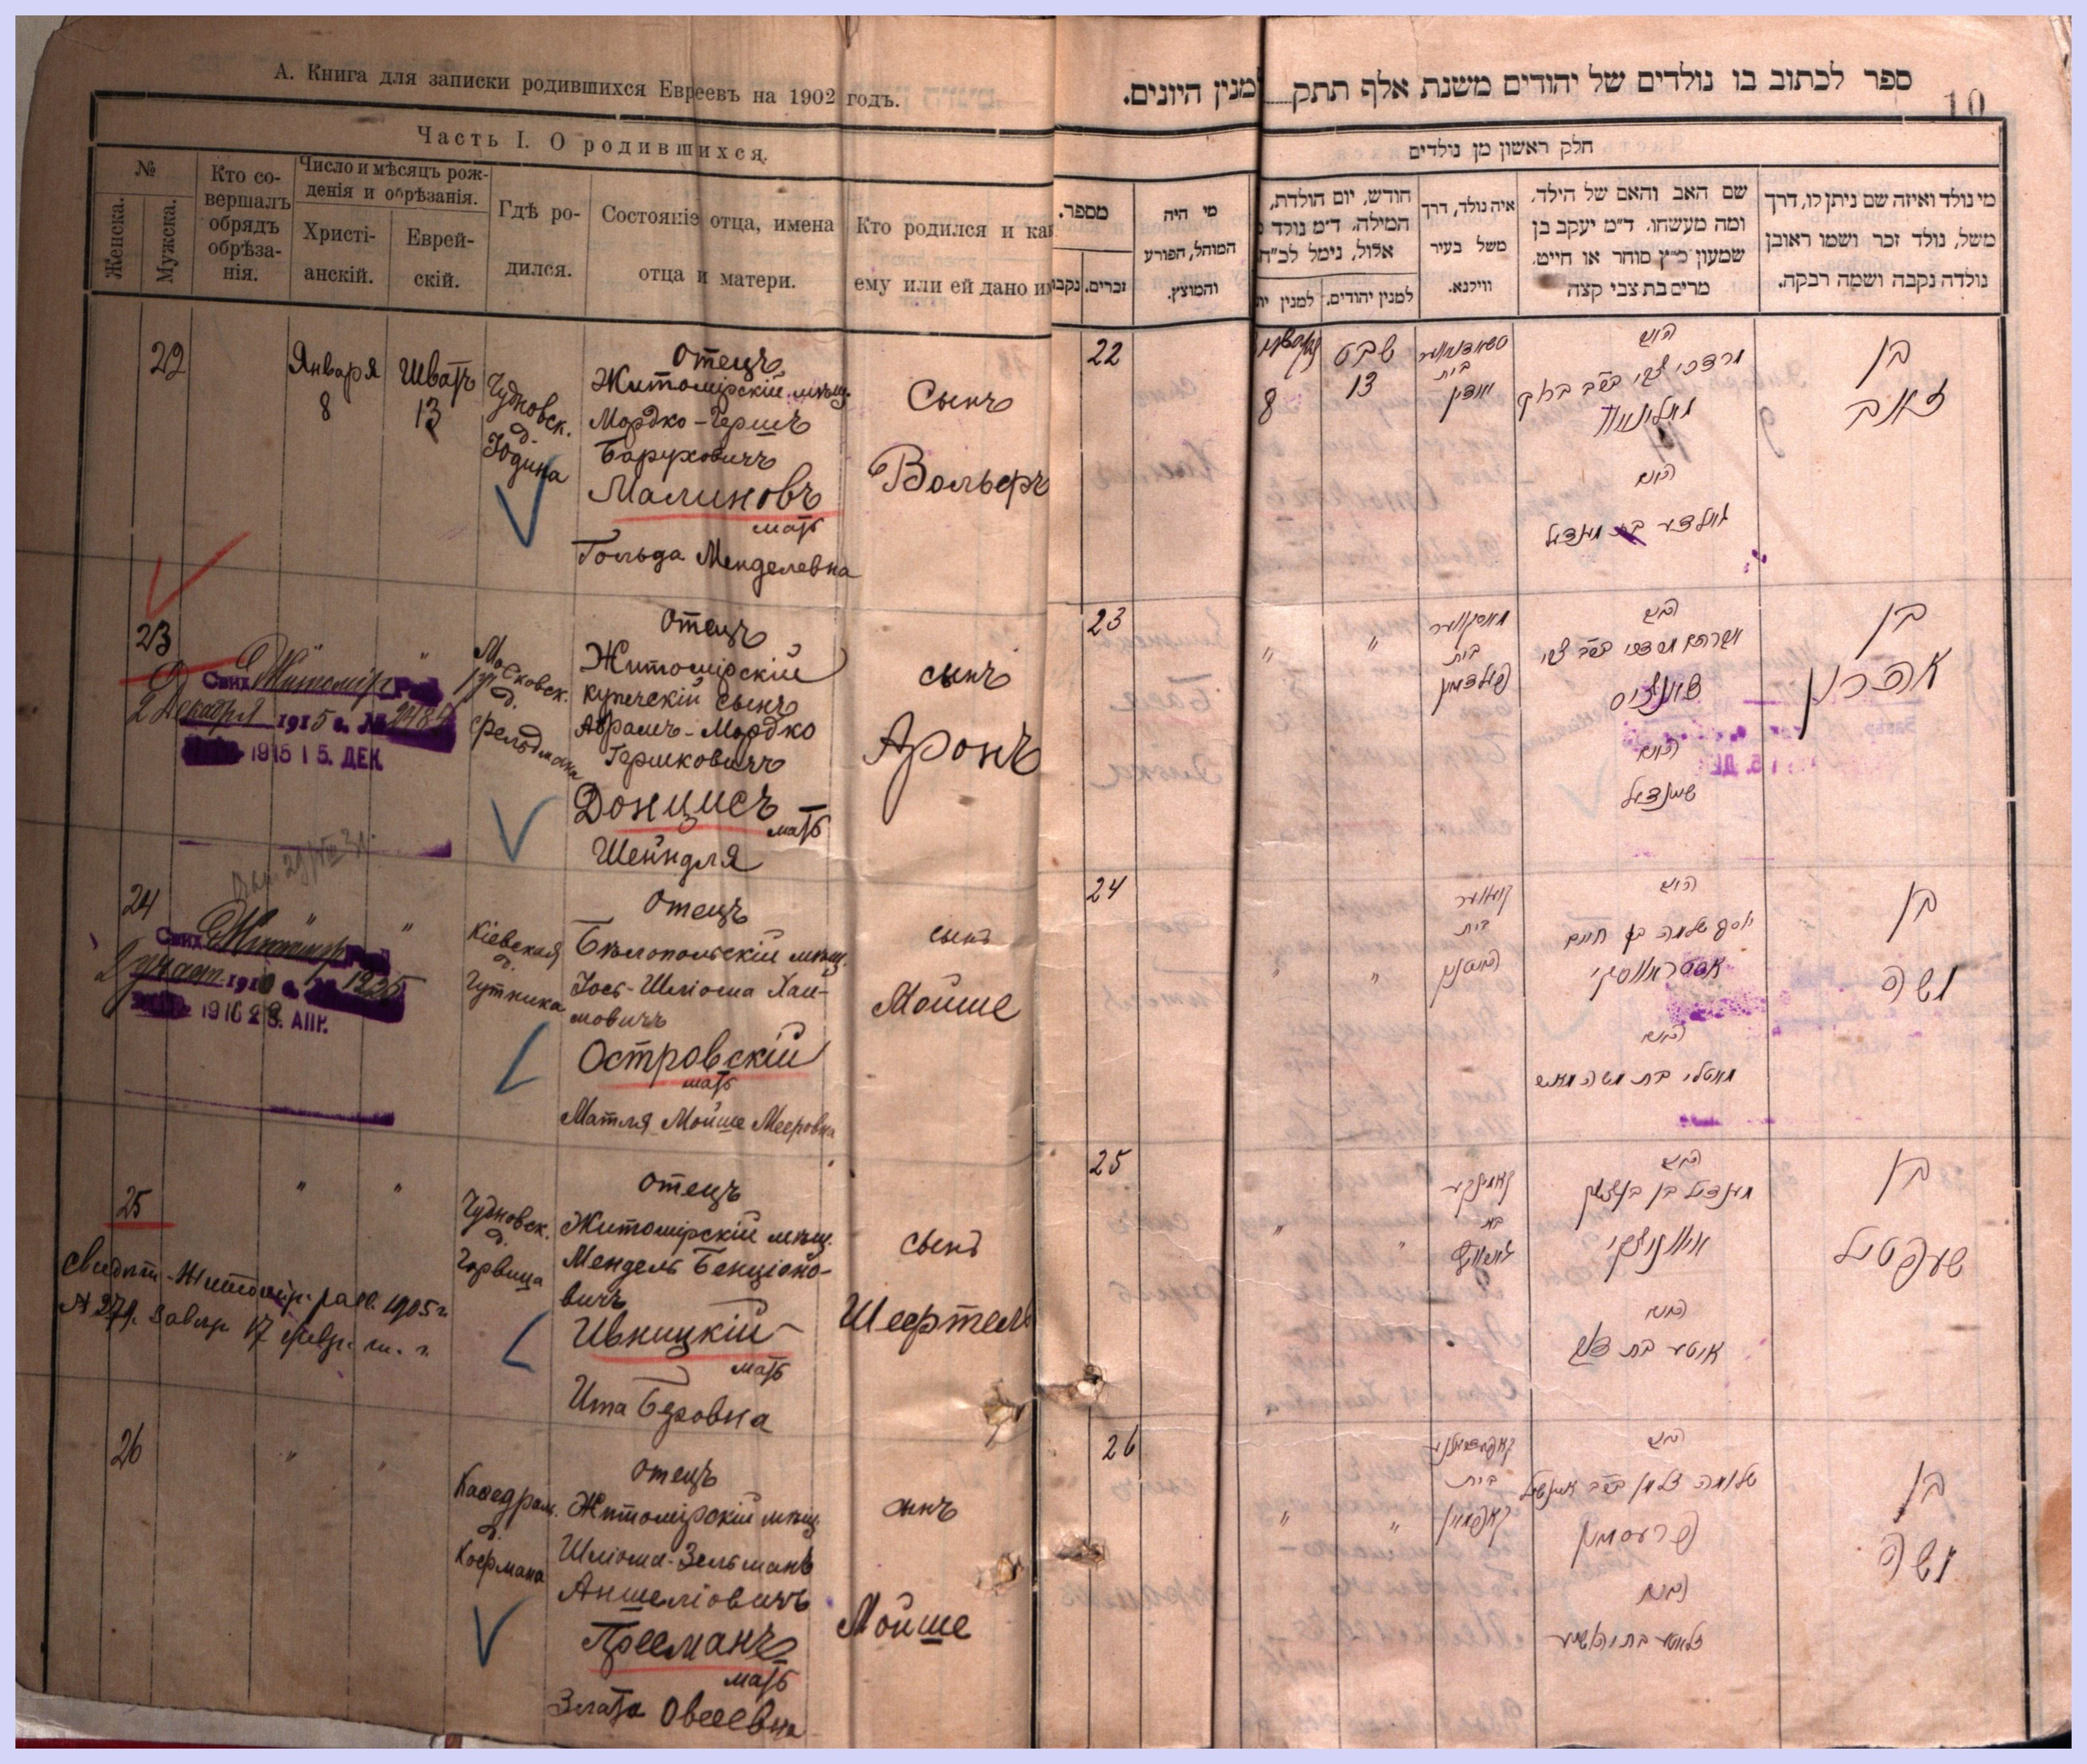 А. Книга для записки родившихся Евреевъ на 1902 годъ.
Часть I. О родившихся.
№
Женска.
Мужска.
Кто со-
вершалъ
обрядъ
обрѣза-
нія.
Число и мѣсяцъ рож-
денія и обрѣзанія.
Христі-
анскій.
Еврей-
скій.
Гдѣ ро-
дился.
Состояніе отца, имена
отца и матери.
Кто родился и ка
ему или ей дано и
22
Января
8
Шватъ
13
Чудновск.
д.
Юдина
Отецъ
Житомірскій мѣщ.
Мордко-Гершъ
Баруховичъ
Малиновъ
мать
Гольда Менделевна
Сынъ
Вольфъ
23
"
Свид
2 Декабря 1915 г. №
1915 15. ДЕК.
Московск.
д.
Фельдмана
Отецъ
Житомірскій
купеческій сынъ
Абрамъ-Мордко
Гершковичъ
Донцисъ
мать
Шейндля
сынъ
Аронъ
24
"
"
Свид
1916 АПР.
Кіевская
д.
Гутника
Отецъ
Бѣлопольскій мѣщ.
Іось-Шліома Хаи-
мовичъ
Островскій
мать
Матля Мойше Мееровна
сынъ
Мойше
25
"
"
Свидѣт. Житомір. 1905 г.
Чудновск.
д.
Горвица
Отецъ
Житомірскій мѣщ.
Мендель Бенціоно-
вичъ
Ивницкій
мать
Ита Беровна
сынъ
Шефтель
26
"
"
Каѳедрал.
д.
Кофмана
Отецъ
Житомірскій мѣщ.
Шліома-Зельманъ
Аншеліовичъ
Пресманъ
мать
Злата Овсеевна
сынъ
Мойше
ספר לכתוב בו נולדים של יהודים משנת אלף תתק למנין היונים.
10
חלק ראשון מן נולדים
מי נולד ואיזה שם ניתן לו, דרך
משל, נולד זכר ושמו ראובן
נולדה נקבה ושמה רבקה.
שם האב והאם של הילד,
ומה מעשהו. ד"מ יעקב בן
שמעון כ"ץ סוחר או חייט,
מרים בת צבי קצה
איה נולד, דרך
משל בעיר
ווילנא.
חודש, יום הולדת,
המילה, ד"מ נולד
אלול, נימל לכ"ח
למנין יהודים.
למנין
מי היה
המוהל, הפורע
והמוצץ.
מספר.
זכרים.
נקבו
בן
זאב
האב
מרדכי צבי בר"ב ברוך
מאלינאוו
האם
גאלדע בת מענדיל
בית
יודין
שבט
13
8
22
בן
אהרן
האב
אברהם מרדכי בר"ב צבי
דאנציס
האם
שיינדיל
בית
פעלדמאן
"
"
23
בן
משה
האב
יוסף שלמה בן חיים
אסטראווסקי
האם
מאטלי בת משה מאיר
בית
"
"
24
בן
שעפטיל
האב
מענדיל בן בנציון
איווניצקי
האם
איטע בת
"
"
25
בן
משה
האב
שלמה זלמן בר"ב אנשיל
פרעסמאן
האם
זלאטע בת יהושע
בית
קאפמאן
"
"
26